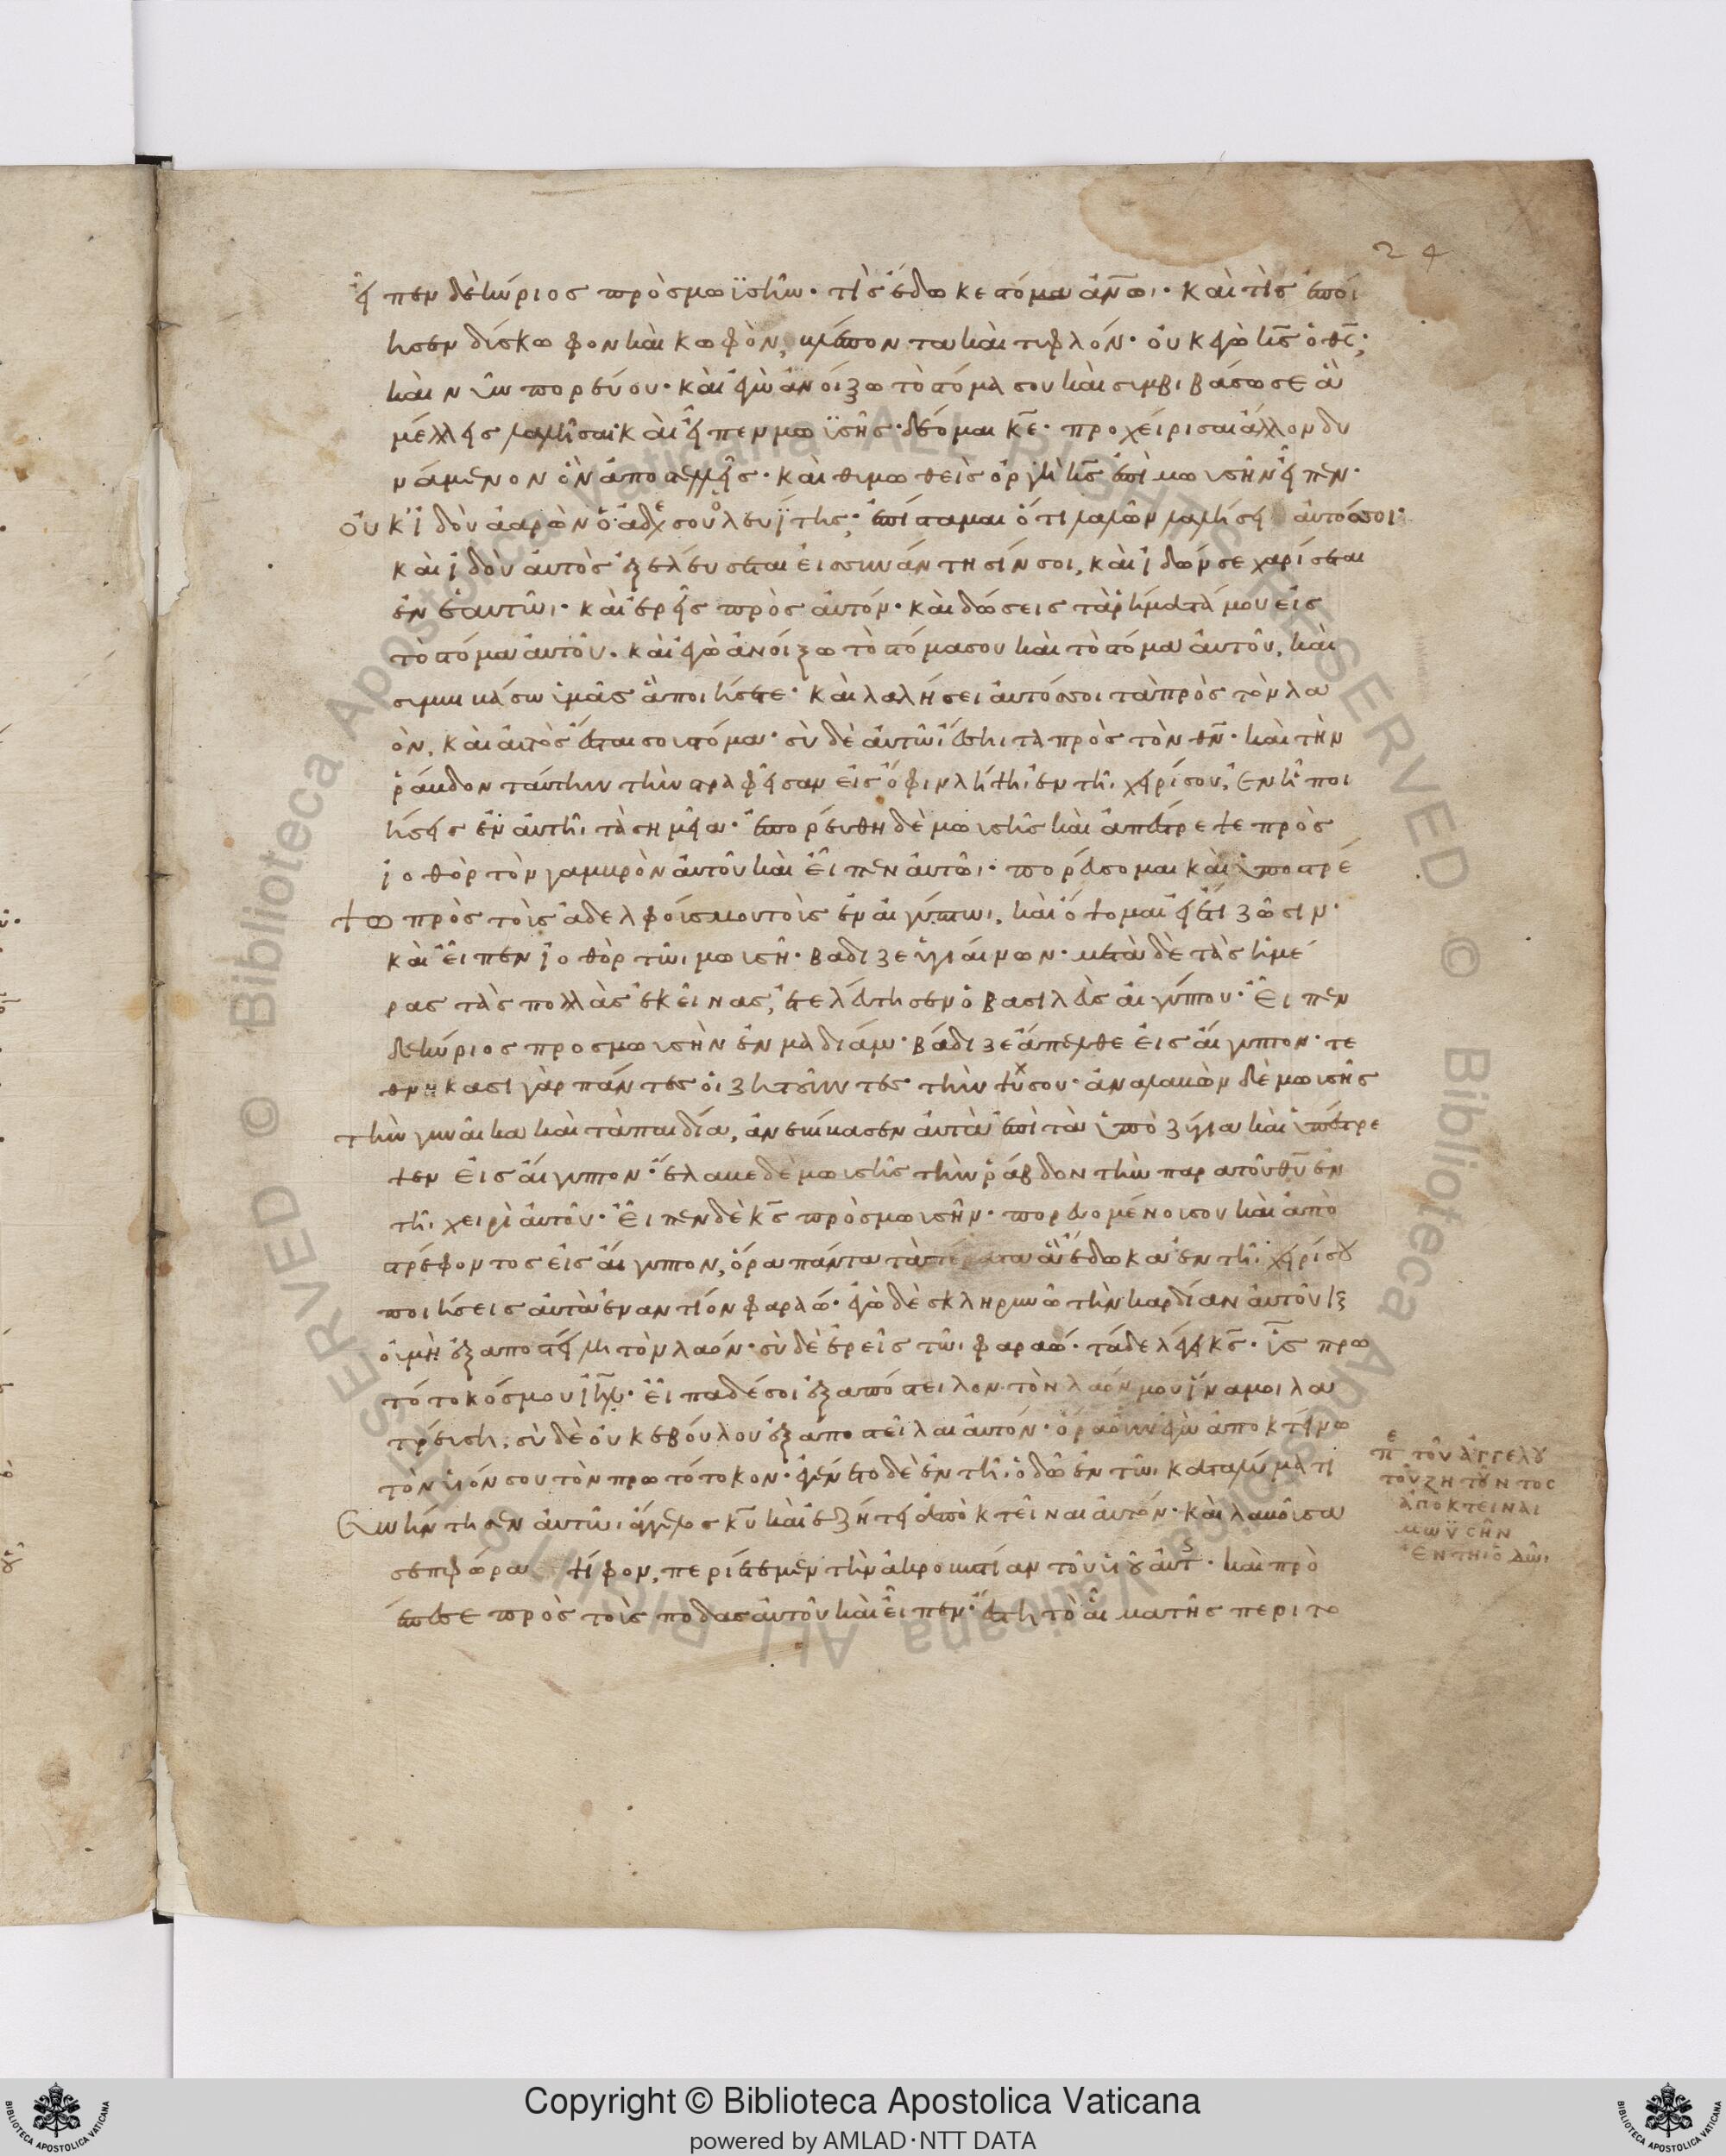 24
εἶπεν δὲ κύριος πρὸς μωϋσῆν· τίς ἔδωκε στόμα ἀν̅ω̅ι· καὶ τίς ἐποί
ησεν δίσκωφον καὶ κωφὸν, βλέποντα καὶ τυφλόν· οὐκ ἐγὼ κ̅ς̅ ὁ θ̅ς̅;
καὶ νῦν πορεύου· καὶ ἐγὼ ἀνοίξω τὸ στόμα σου καὶ συμβιβάσω σε ἃ
μέλλεις λαλῆσαι· καὶ εἶπεν μωϋσῆς· δέομαι κ̅ε̅· προχείρισαι ἄλλον δυ
νάμενον ὃν ἀποστελεῖς· καὶ θυμωθεὶς ὀργῆ κ̅ς̅ ἐπὶ μωυσῆν εἶπεν·
οὐκ ἰδοὺ ἀαρὼν ὁ ἀδε̅χ σου ὁ λευΐτης; ἐπίσταμαι ὅτι λαλῶν λαλήσει αὐτός σοι·
καὶ ἰδοὺ αὐτὸς ἐξελεύσεται εἰς συνάντησίν σοι, καὶ ἰδών σε χαρίσεται
ἐν ἑαυτῶι· καὶ ἐρεῖς πρὸς αὐτόν· καὶ δώσεις τὰ ῥήματά μου εἰς
τὸ στόμα αὐτοῦ· καὶ ἐγὼ ἀνοίξω τὸ στόμα σου καὶ τὸ στόμα αὐτοῦ, καὶ
συμβιβάσω ὑμᾶς ἃ ποιήσετε· καὶ λαλήσει αὐτός σοι τὰ πρὸς τὸν λα
ὸν, καὶ αὐτὸς ἔσται σου στόμα· σὺ δὲ αὐτῶι ἔσηι τὰ πρὸς τὸν θ̅ν̅· καὶ τὴν
ῥάβδον ταύτην τὴν στραφεῖσαν εἰς ὄφιν λήψηι ἐν τῆι χειρί σου, ἐν ἧι ποι
ήσεις ἐν αὐτῆι τὰ σημεῖα· ἐπορεύθη δὲ μωυσῆς καὶ ἀπέστρεψε πρὸς
ἰοθὸρ τὸν γαμβρὸν αὐτοῦ καὶ εἶπεν αὐτῶι· πορεύσομαι καὶ ὑποστρέ
ψω πρὸς τοὺς ἀδελφούς μου τοὺς ἐν αἰγύπτωι, καὶ ὄψομαι εἰ ἔτι ζῶσιν·
καὶ εἶπεν ἰοθὸρ τῶι μωυσῆ· βάδιζε ὑγιαίνων· μετὰ δὲ τὰς ἡμέ
ρας τὰς πολλὰς ἐκείνας, ἐτελεύτησεν ὁ βασιλεὺς αἰγύπτου· εἶπεν
δὲ κύριος προς μωυσῆν ἐν μαδιάμ· βάδιζε ἄπελθε εἰς αἴγυπτον· τε
θνήκασι γὰρ πάντες οἱ ζητοῦντές τὴν ψυ̅χ σου· ἀναλαβὼν δὲ μωυσῆς
τὴν γυναῖκα καὶ τὰ παιδία, ἀνεβίβασεν αὐτὰ ἐπὶ τὰ ὑποζύγια καὶ ὑπέστρε
ψεν εἰς αἴγυπτον· ἔλαβε δὲ μωυσῆς τὴν ῥάβδον τὴν παρα τοῦ θ̅υ̅ ἐν
τῆι χειρὶ αὐτοῦ· εἶπεν δὲ κ̅ς̅ πρὸς μωυσῆν· πορευομένου σου καὶ ἀπο
στρέφοντος εἰς αἴγυπτον, ὅρα πάντα τὰ τέρατα ἃ ἔδωκα ἐν τῆι χειρί σου
ποιήσεις αὐτὰ ἐναντίον φαραώ· ἐγὼ δὲ σκληρυνῶ τὴν καρδίαν αὐτοῦ κ
οὐ μὴ ἐξαποστείλη τὸν λαόν· σὺ δὲ ἐρεῖς τῶι φαραώ· τάδε λέγει κ̅ς̅· υ̅ς̅ πρω
τότοκός μου ι̅η̅λ̅· εἶπα δέ σοι ἐξαπόστειλον τὸν λαόν μου ἵνα μοι λα
τρεύση, σὺ δὲ οὐκ ἐβούλου ἐξαποστεῖλαι αὐτόν· ὅρα οὖν ἐγὼ ἀποκτείνω
τὸν υἱόν σου τὸν πρωτότοκον· ἐγένετο δὲ ἐν τῆι ὁδῶ ἐν τῶι καταλύματι
συνήντησεν αὐτῶι ἄγγελος κ̅υ̅ καὶ ἐζήτει ἀποκτεῖναι αὐτόν· καὶ λαβοῦσα
σεπφώρα ψῆφον, περιέτεμεν τὴν ἀκροβυστίαν τοῦ υἱοῦ αὐτ· καὶ προ
έπεσε πρὸς τοὺς πόδας αὐτοῦ καὶ εἶπεν· ἔστη τὸ αἷμα τῆς περιτο
πε τοῦ ἀγγέλου
τοῦ ζητοῦντος
ἀποκτεῖναι
μωϋσῆν
ἐν τῆι ὁδῶι
Copyright © Biblioteca Apostolica Vaticana
powered by AMLAD·NTT DATA